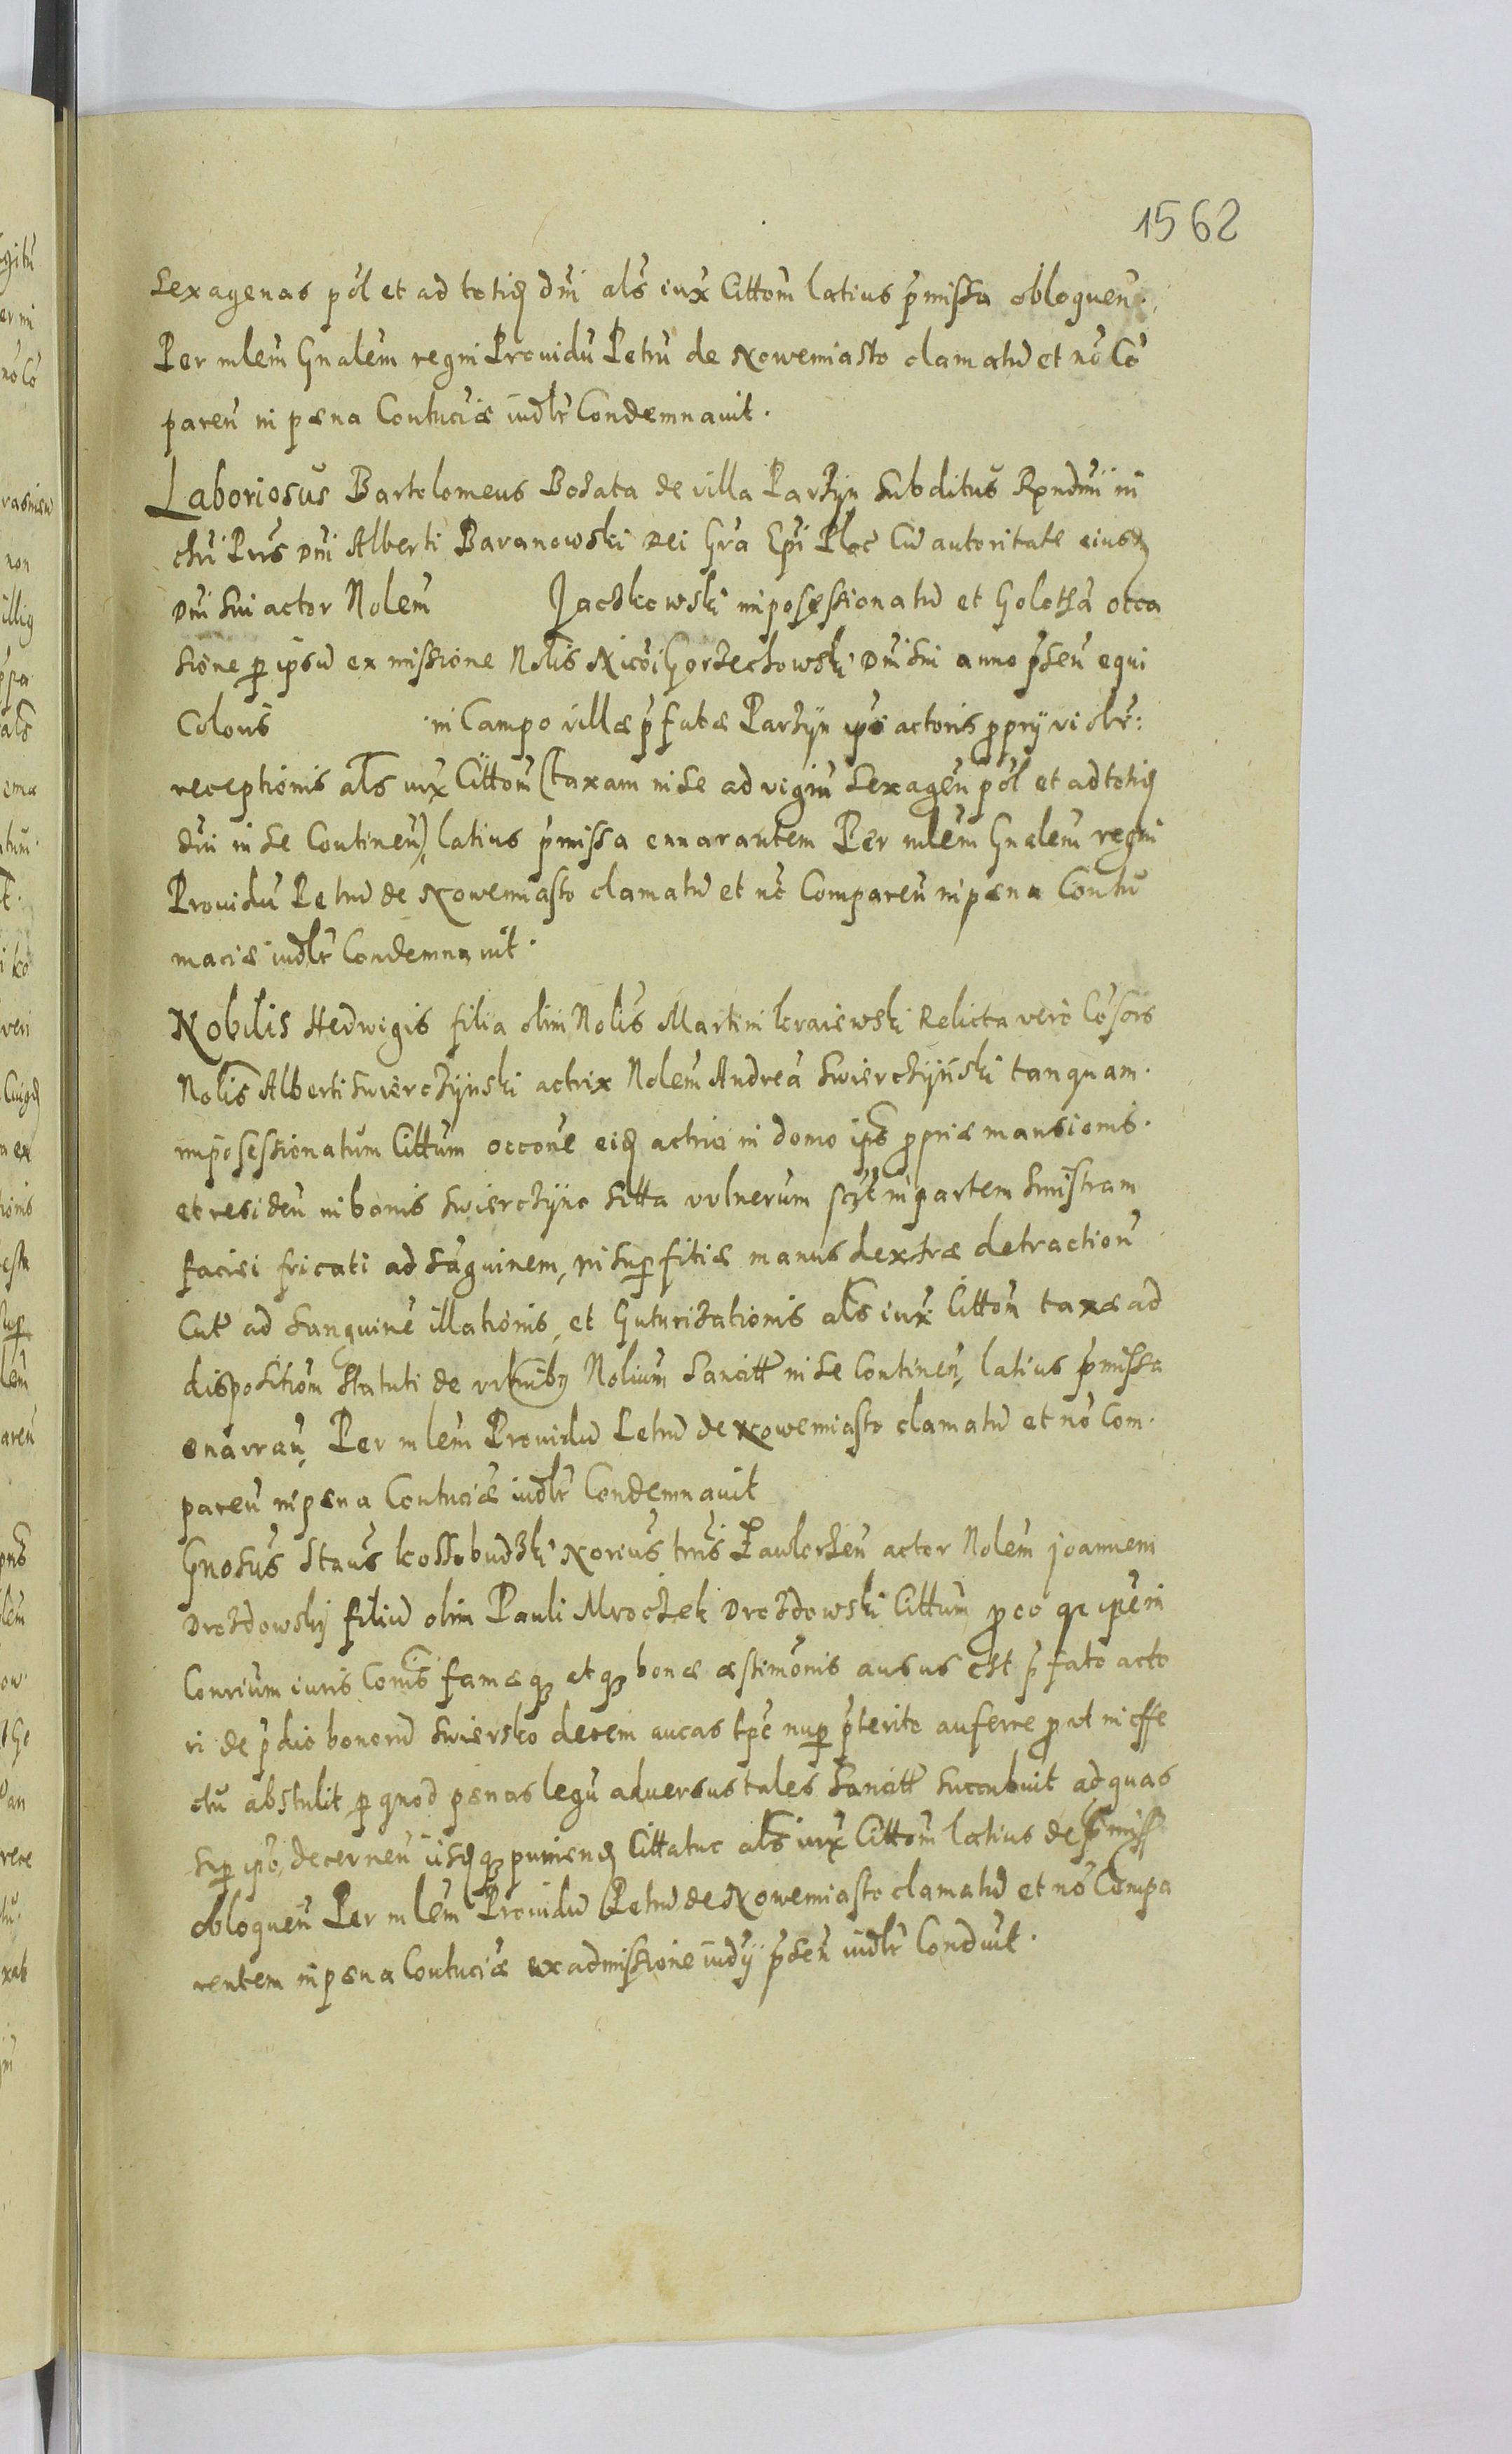 1562
Sexagenas pōl et ad totiȝ dm̄ als̄ iux̄ Cittōm latius p̄missa obloqueñ.
Per mlem̄ Gnalem̄ regni Providū Petrū de Nowemiasto clamatū et nō Cō
pareñ in pœna Contuciæ iudlr̄ Condemnavit.
Laboriosus Bartolomeus Bodata de villa Parzyn Subditus Rpndmī in
chrī Pris Dnī Alberti Baranowski Dei Grā Epī Ploc Cū autoritate eiusd
Dnī sui actor Nolem̄ Jaczkowski imposessionatū et Golotā occa
sione p ipsū ex missione Nolis Nicoī Gorzechowski Dnī sui anno p̄señ equi
Coloris in Campo villæ p̄fatæ Parzyn ipō actoris proprij violr̄:
receptionis als̄ iux̄ Cittom̄ (taxam in se ad vigin̄ Sexageñ pōl et ad totiȝ
dnī in se Contineñ) latius p̄missa ennarantem Per mlem̄ Gnalem̄ regni
Providū Petrū de Nowemiasto clamatū et nō Compareñ in pœna Contu
maciæ iudlr̄ Condemnavit.
Nobilis Hedwigis filia olim Nolis Martini Kraiewski Relicta vero Cōsors
Nolis Alberti Swierczynski actrix Nolem̄ Andreā Swierczynski tanquam
imposessionatum Cittum occone eiȝ actric in domo ips̄ propriæ mansionis
et resideñ in bonis Swierczyno Sitta vulnerum scyt in partem Sinistram
faciei fricati ad sāguinem, in supfitiæ manus dextræ detractioñ
Cutꝭ ad sanguinē illationis, et Guturizationis als̄ iux̄ Cittom̄ taxæ ad
dispositiom̄ Statuti de vulnibȝ Nolium Sancitꝭ in se Contineñ latius p̄missa
enarrañ Per mlem̄ Providū Petrū de Nowemiasto clamatū et nō Com
pareñ in pœna Contuciæ iudlr̄ Condemnavit
Gnosus Staus Kossobudzki Norius trīs Zawkrzeñ actor Nolem̄ joannem
Drozdowskij filiū olim Pauli Mroczek Drozdowski Cittum pro eo qꝛ ipe in
Conrium iuris Conis famæqȝ et qȝ bonæ æstimonis ausus est p̄fato acto
ri de p̄dio bonorū Swiersko decem aucas tpe nup p̄terito auferre prout in effe
ctu abstulit, p quod pœnas legū adversus tales Sancitꝭ succubuit ad quas
sup ipo decerneñ iisdqȝ puniend Cittatur als̄ iux̄ Cittom̄ latius de p̄miss
obloqueñ Per mlem̄ Providū Petrū de Nowemiasto clamatū et nō Compa
rentem in pœna Contuciæ ex admissione iudij p̄señ iudlr̄ Conduit.